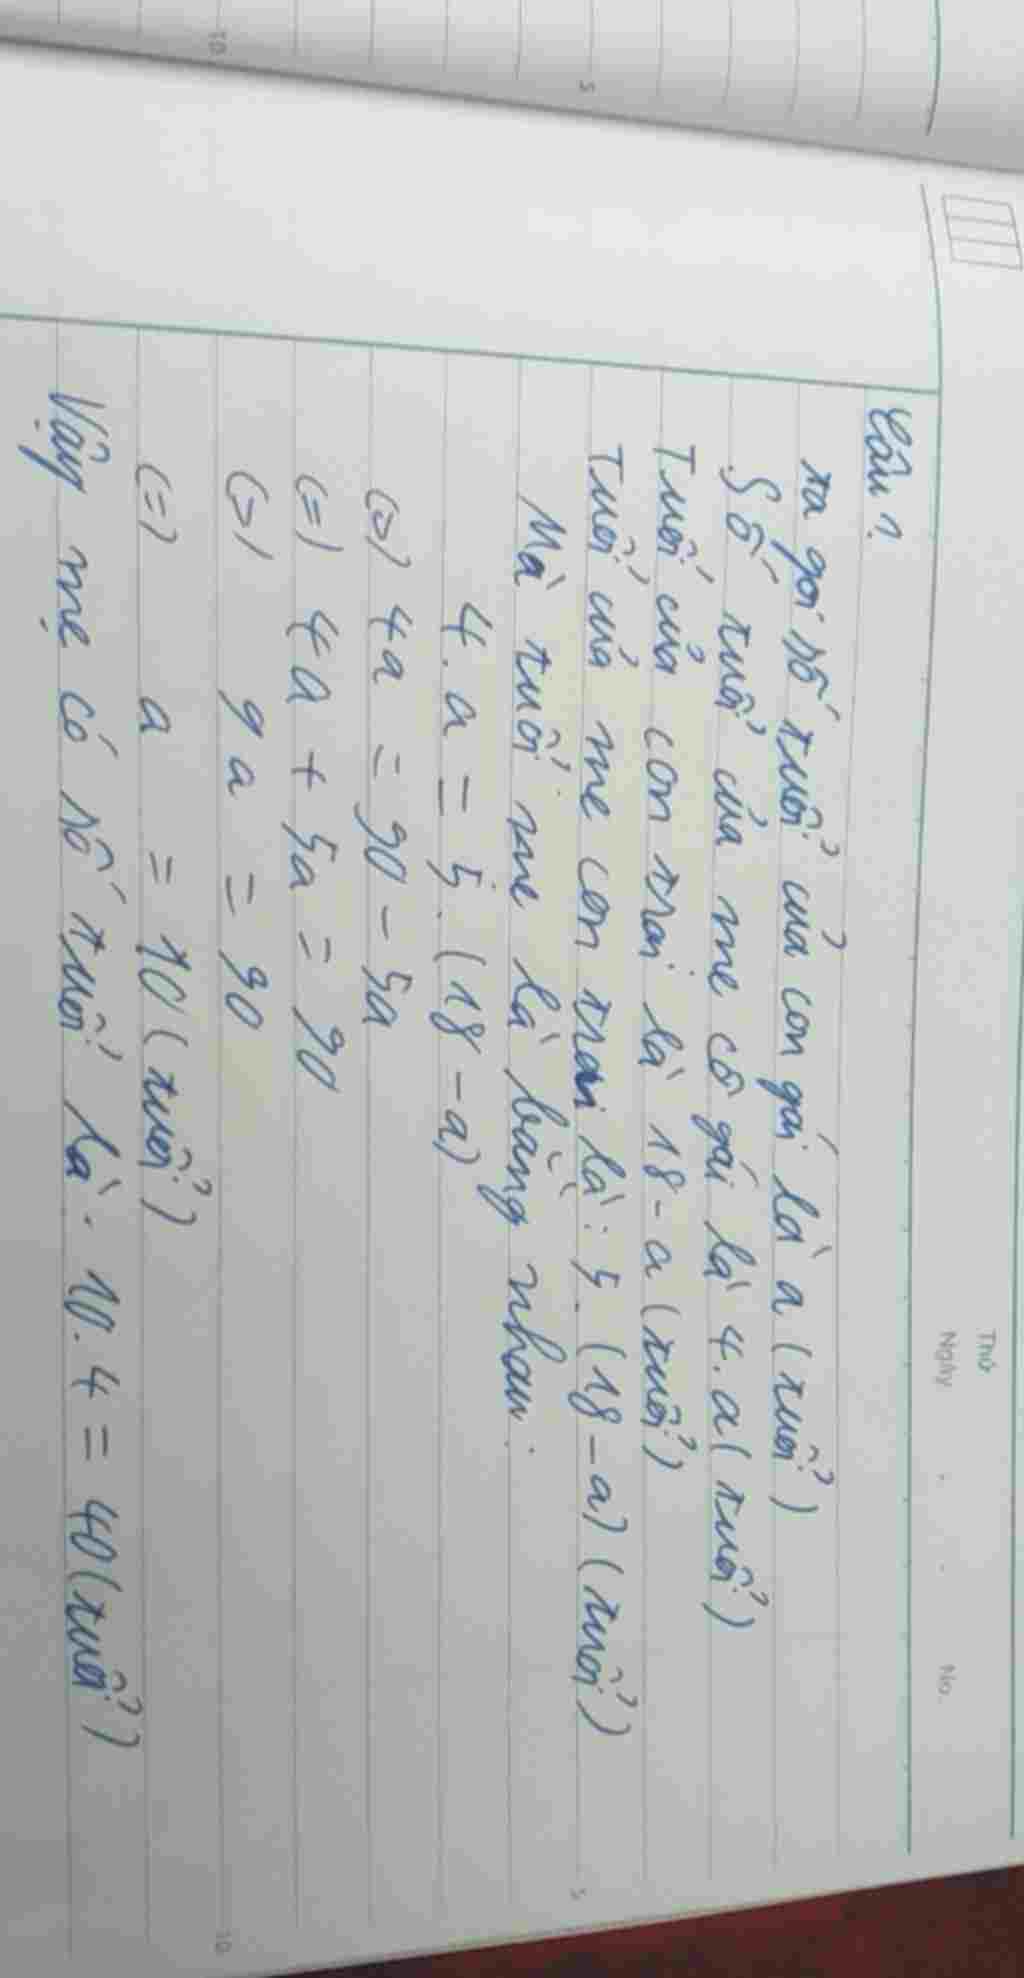 Thứ
Ngày . . No.
Câu 1
ta gọi số tuổi của con gái là a (tuổi)
Số tuổi của mẹ cô gái là 4. a (tuổi)
Tuổi của con trai là 18 - a (tuổi)
Tuổi của mẹ con trai là: 5. (18 - a) (tuổi)
Mà tuổi mẹ là bằng nhau:
4. a = 5. (18 - a)
(=) 4a = 90 - 5a
(=) 4a + 5a = 90
(=) 9a = 90
(=) a = 10 (tuổi)
Vậy mẹ có số tuổi là. 10. 4 = 40 (tuổi)
5
10
5
10